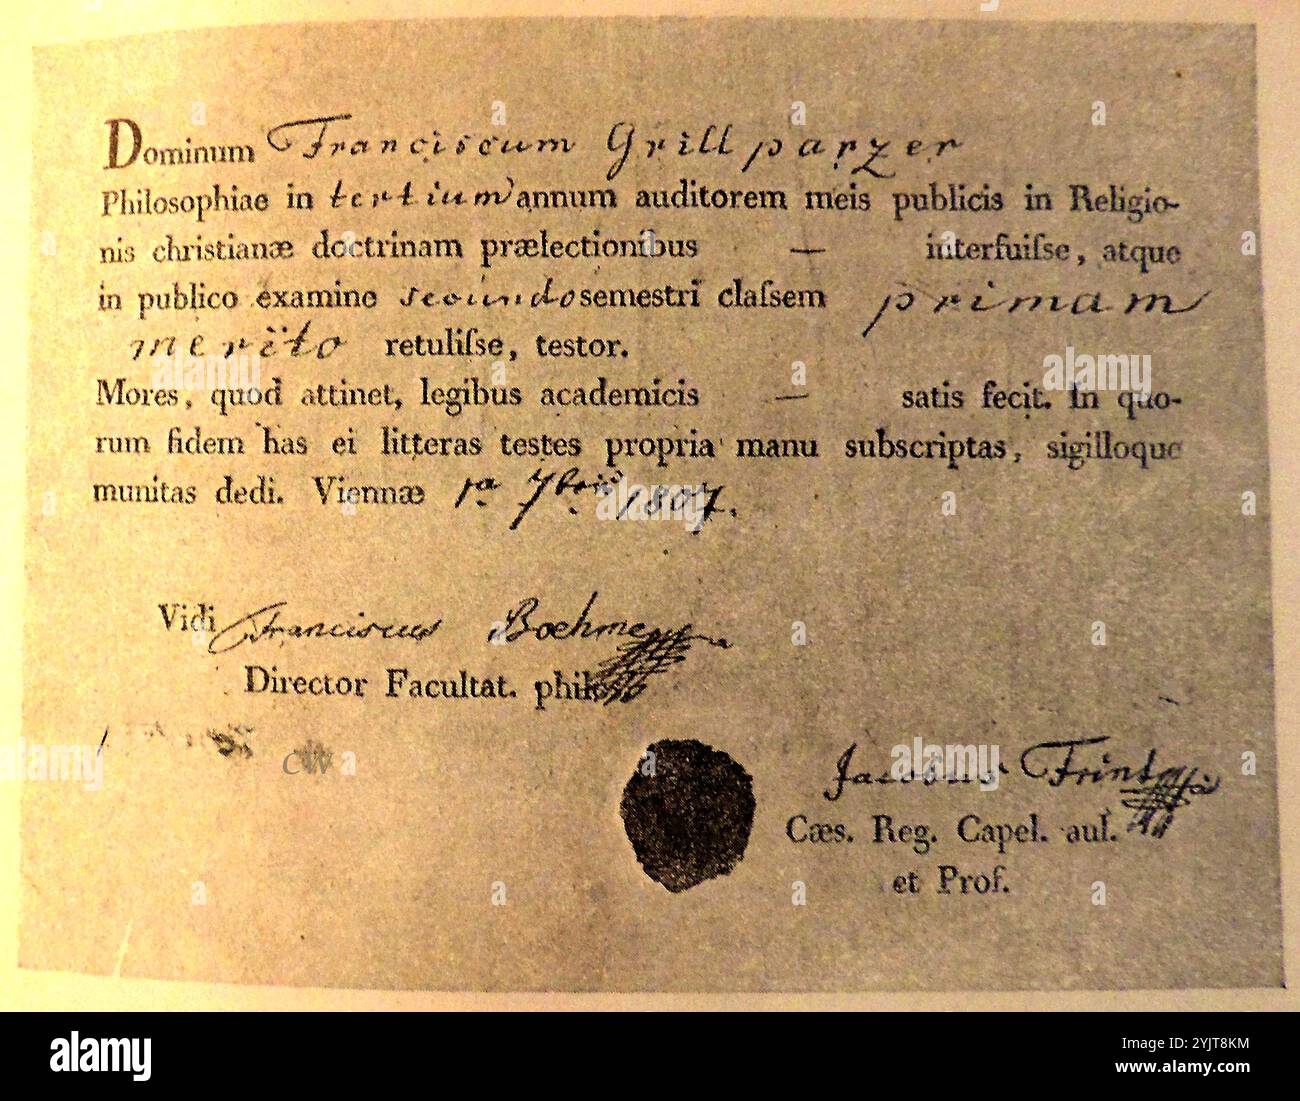 Dominum Franciscum Grillparzer
Philosophiae in tertium annum auditorem meis publicis in Religio-
nis christianæ doctrinam prælectionibus — interfuiſse, atque
in publico examine secundo semestri claſsem primam
merito retuliſse, testor.
Mores, quod attinet, legibus academicis — satis fecit. In quo-
rum fidem has ei litteras testes propria manu subscriptas, sigilloque
munitas dedi. Viennæ 1a 7bris 1807.
Vidi Franciscus Boehme
Director Facultat. philos
CW
Jacobus Frint
Cæs. Reg. Capel. aul.
et Prof.
alamy
Image ID: 2YJT8KM
www.alamy.com